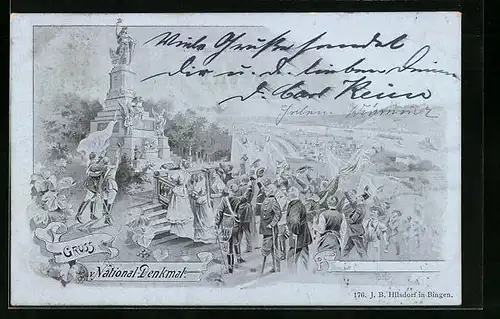 Viele Grüße sendet
Dir u. d. lieben Deinen
d. Carl
GRUSS
v. National-Denkmal.
176. J. B. Hilsdorf in Bingen.